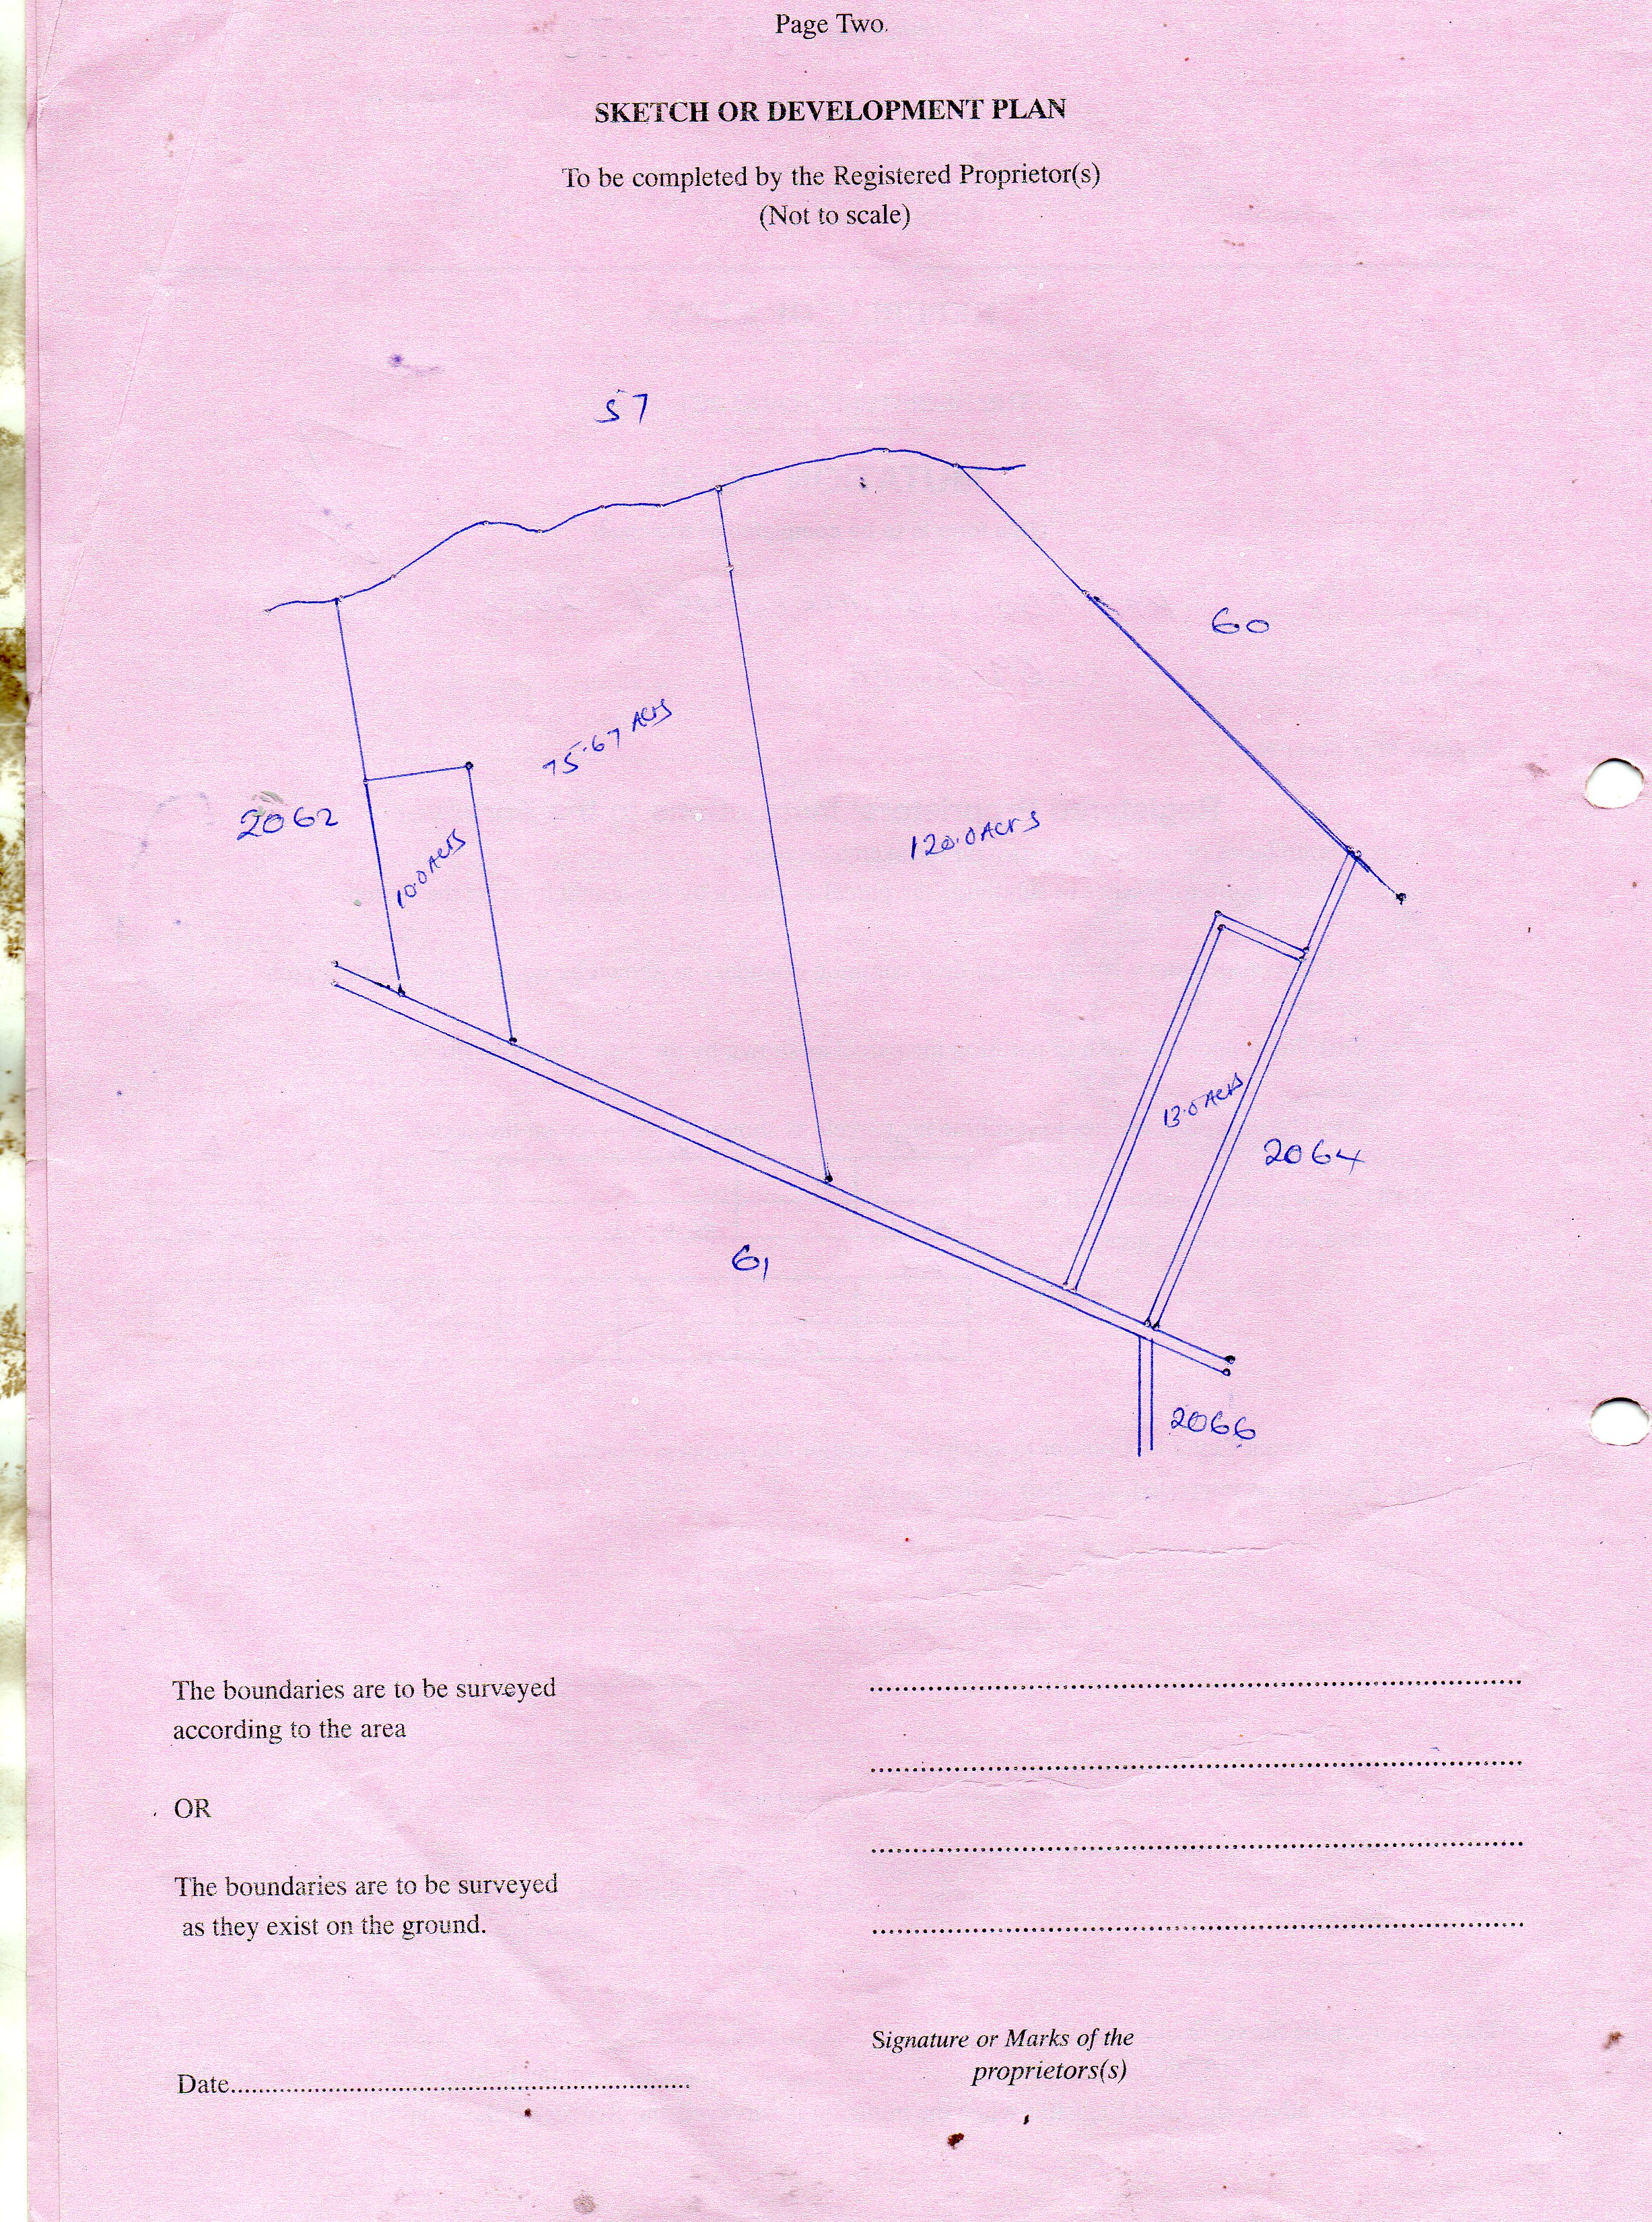 Page Two.
SKETCH OR DEVELOPMENT PLAN
To be completed by the Registered Proprietor(s)
(Not to scale)
57
60
75.67 Acrs
2062
10.0 Acrs
120.0 Acrs
13.0 Acrs
2064
61
2066
The boundaries are to be surveyed
according to the area
OR
The boundaries are to be surveyed
as they exist on the ground.
Signature or Marks of the
proprietors(s)
Date